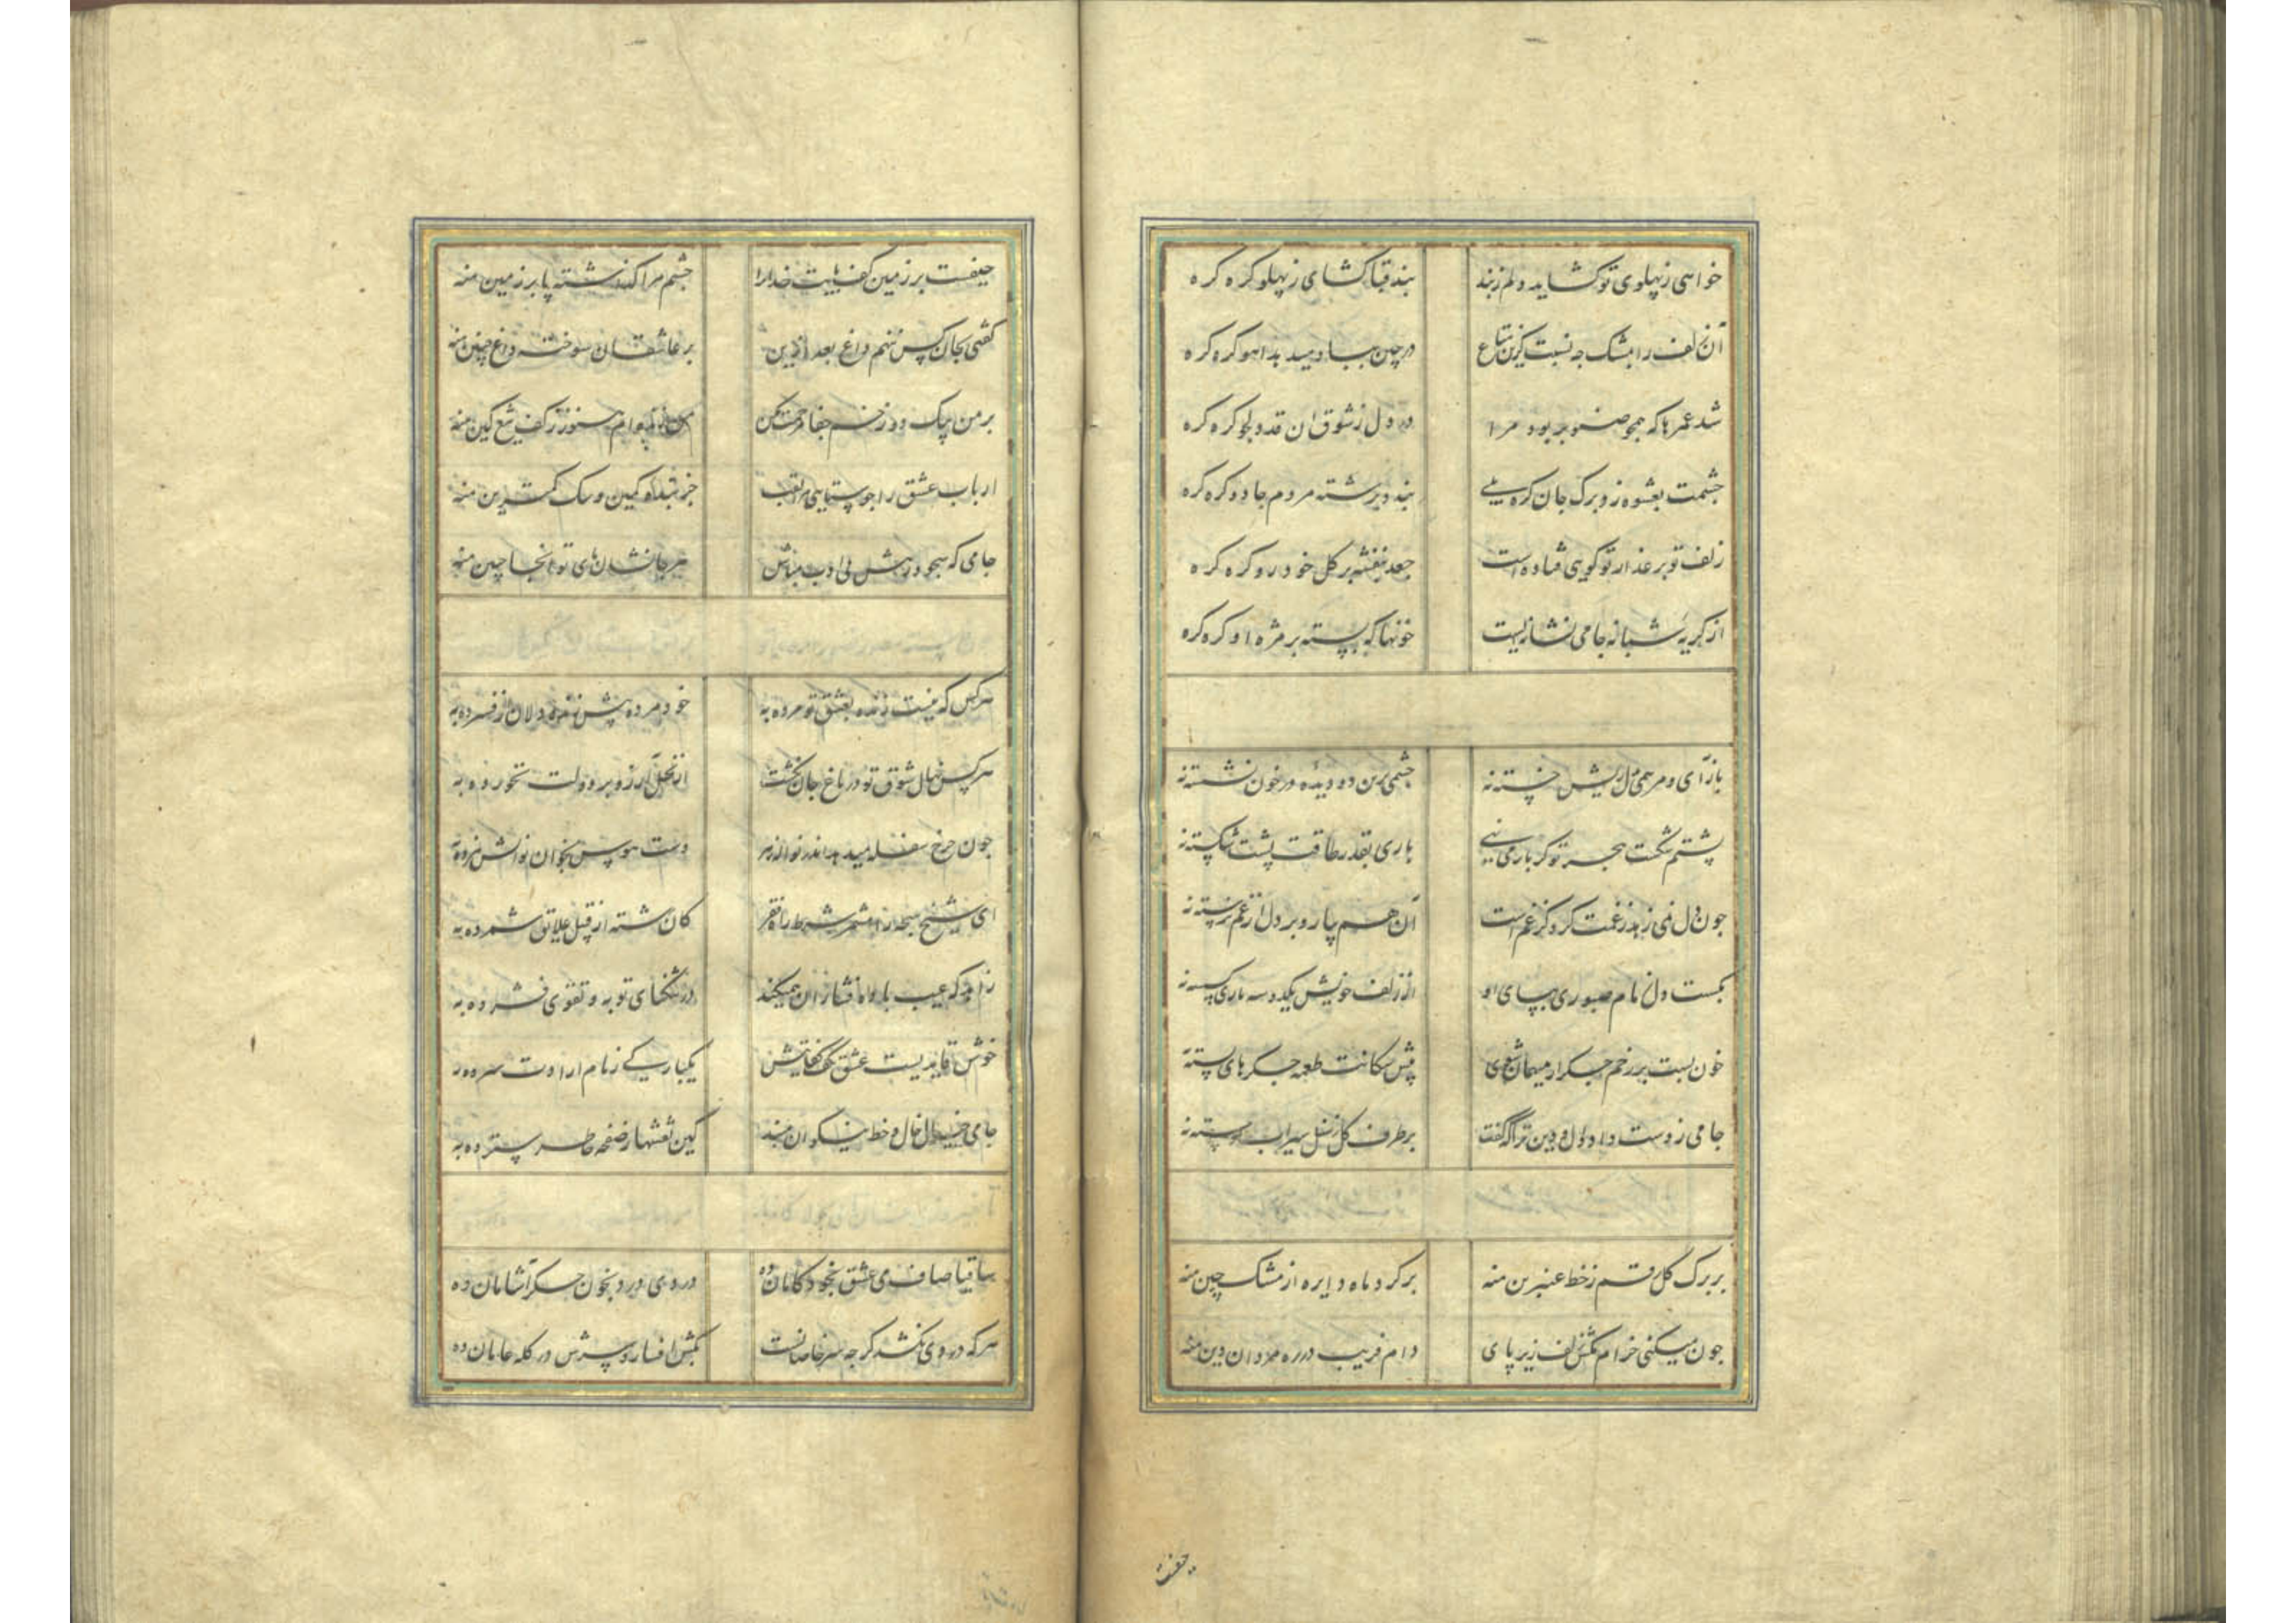 خواهی ز پهلوی تو کشاید دلم ز بند بند قبا کشای ز پهلو کره کره
آن زلف را بمشک چه نسبت کزین متاع در چین بباد میدهد آهو کره کره
شد عمرها که همچو صنوبر بود مرا در دل ز شوق آن قد دلجو کره کره
چشمت بعشوه زد برک جان کره بلی بندد برشته مردم جادو کره کره
زلف تو بر عذار تو کویی فتاده است جعد بنفشه بر کل خودرو کره کره
از کریه شبانه جامی نشانه ایست خونها که بسته بر مژه او کره کره
بازآی و مرهمی دل ریش خسته نه چشمی برین دو دیده در خون نشسته نه
پشتم شکست هجر تو کر بار می نهی باری بقدر طاقت پشت شکسته نه
چون دل نمی زهد ز غمت کرد کز غم است آن هم بیا و بر دل از غم نرسته نه
بکست دل زمام صبوری بپای او از زلف خویش یکدو سه تاری کسسته نه
خون بست بر زخم جکر از میهمان شوی پیش سکانت طعمه جکرهای بسته نه
جامی ز دست داد دل و دین ترا که کفت بر طرف کل ز سنبل سیراب دسته نه
بر برک کل رقم ز خط عنبرین منه بر کرد ماه دایره از مشک چین منه
چون میکنی خرام مکش زلف زیر پای دام فریب در ره مردان دین منه
حیفست
حیفست بر زمین کف پایت خدا را چشم مرا کذشته پا بر زمین منه
کفتی بجان کس ننهم داغ بعد ازین بر عاشقان سوخته داغ چنین منه
بر من بیک دو زخم جفا مرحمت مکن من زنده ام هنوز ز کف تیغ کین منه
ارباب عشق را چو ستایی مرا لقب جز بنده کمین و سک کمترین منه
جامی که همچو در رهش بی ادب مباش هر جا نشان پای تو آنجا جبین منه
هر کس که نیست زنده بعشق تو مرده به خود مرده پیش زنده دلان از فسرده به
هر کس نهال شوق تو در باغ جان نکشت از نخل آرزو بر دولت نخورده به
چون چرخ سفله میدهد اندر نواله زهر دست هوس بخوان نوالش نبرده به
ای شیخ سبحه را مشمر شرط راه فقر کان رشته از قبیل علایق شمرده به
زاهد که عیب باده فشاران همیکند در تنکنای توبه و تقوی فشرده به
خوش قایدیست عشق بکف کفایتش یکبارکی زمام ارادت سپرده به
جامی خیال خال و خط نیکوان مبند کین نقشها ز صفحه خاطر سترده به
ساقیا صاف می عشق بخودکامان ده دردی درد بخون جکرآشامان ده
هر که دردی نکشد کر چه سر خاصانست بکش افسار و سرش در کله عامان ده